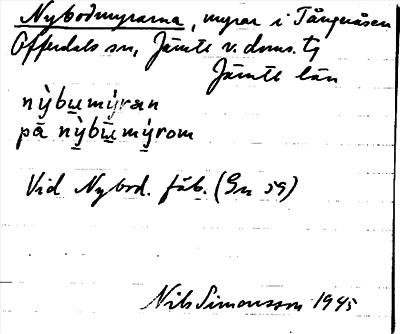 Nybodmyrarna, myrar i Tångeråsen
Offerdals sn, Jämtl. v. doms. tg
Jämtl. län
nỳbu̲mýran
på nỳ̲bu̲mý̲rom
Vid Nybod. fäb. (Gn 59)
Nils Simonsson 1945